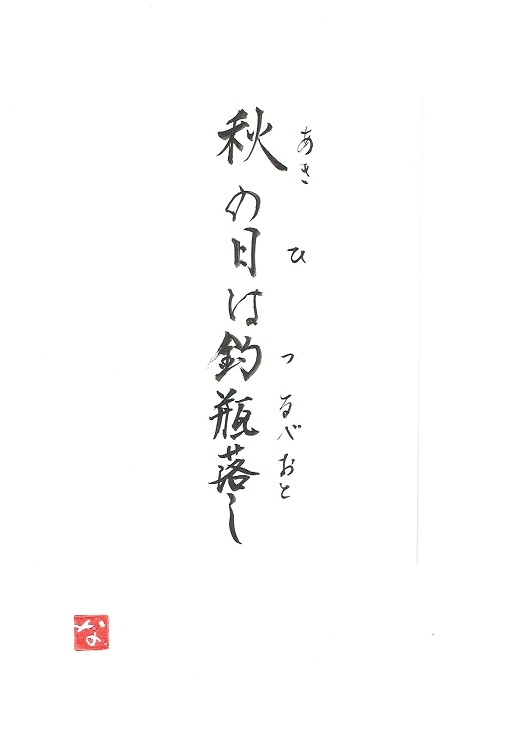 秋の日は釣瓶落し
あき ひ つるべおと
な